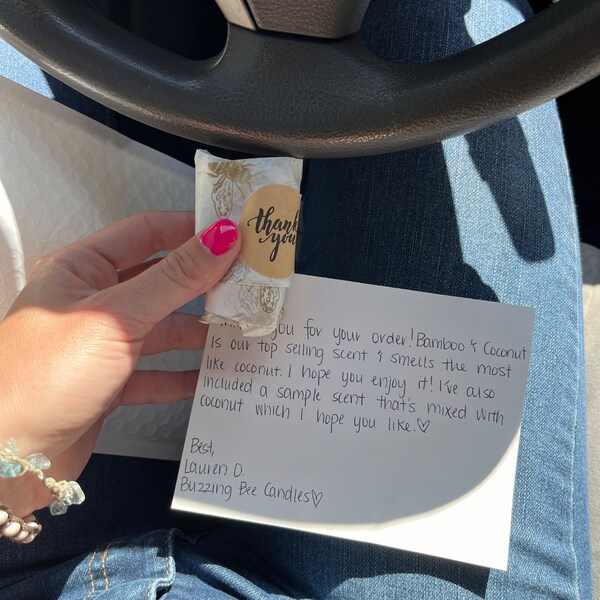 thank
you
you for your order! Bamboo & Coconut
is our top selling scent & smells the most
like coconut. I hope you enjoy it! I've also
included a sample scent that's mixed with
coconut which I hope you like.♡
Best,
Lauren D.
Buzzing Bee Candles♡